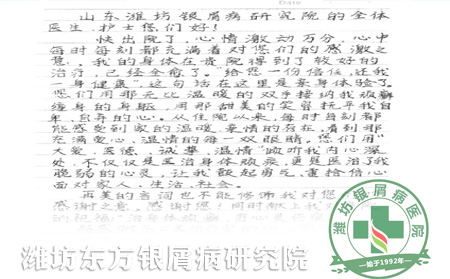 山东潍坊银屑病研究院的全体
医生、护士您们好！
快出院了，心情激动万分，心中
每时每刻都充满着对您们的感激之
意，我的身体在贵院得到了较好的
治疗，已经全愈了。"给您一份信任，还我
一身健康"，这句话在这里是亲身体验了
您们用那无比温暖的双手接纳我被癣
缠身的身躯，用那甜美的笑容抚平我自
卑、自弃的心。从住院以来，每时每刻都
能感受到家的温暖、亲情的存在，看到那
充满爱心、温情的每一双眼睛，您们用
大爱、医德、诚挚、温情
处，不仅仅是医治身体顽疾，更是医治了我
脆弱的心灵，让我鼓起勇气，重拾信心
面对家人、生活、社会。
再美的言词也不能修饰我对您
感谢之意，感谢您
潍坊东方银屑病研究院
潍坊银屑病医院
始于1992年